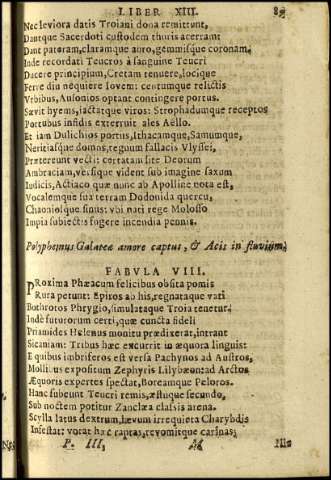 LIBER XIII.
Nec leviora datis Troiani dona remittunt,
Dantque Sacerdoti custodem thuris acerram:
Dant pateram, claramque auro, gemmisque coronam.
Inde recordati Teucros à sanguine Teucri
Ducere principium, Cretam tenuere, locique
Ferre diu nequiere Iovem: centumque relictis
Vrbibus, Ausonios optant contingere portus.
Sævit hyems, iactatque viros: Strophadumque receptos
Portubus infidis exterruit ales Aëllo.
Et iam Dulichios portus, Ithacamque, Samumque,
Neritiasque domos, regnum fallacis Vlyssei,
Prætereunt vecti: certatam lite Deorum
Ambraciam, versique vident sub imagine saxum
Iudicis, Actiaco quæ nunc ab Apolline nota est,
Vocalemque sua terram Dodonida quercu,
Chaoniosque sinus: vbi nati rege Molosso
Impia subiectis fugere incendia pennis.
Polyphemus Galateæ amore captus, & Acis in fluvium.
FABVLA VIII.
PRoxima Phæacum felicibus obsita pomis
Rura petunt: Epiros ab his, regnataque vati
Buthrotos Phrygio, simulataque Troia tenetur.
Inde futurorum certi, quæ cuncta fideli
Priamides Helenus monitu prædixerat, intrant
Sicaniam: Tribus hæc excurrit in æquora linguis:
E quibus imbriferos est versa Pachynos ad Austros,
Mollibus expositum Zephyris Lilybæon: ad Arctos
Æquoris expertes spectat, Boreamque Peloros.
Hanc subeunt Teucri remis, æstuque secundo,
Sub noctem potitur Zanclæa classis arena.
Scylla latus dextrum, lævum irrequieta Charybdis
Infestat: vorat hæc raptas, revomitque carinas;
P. III. M Illa